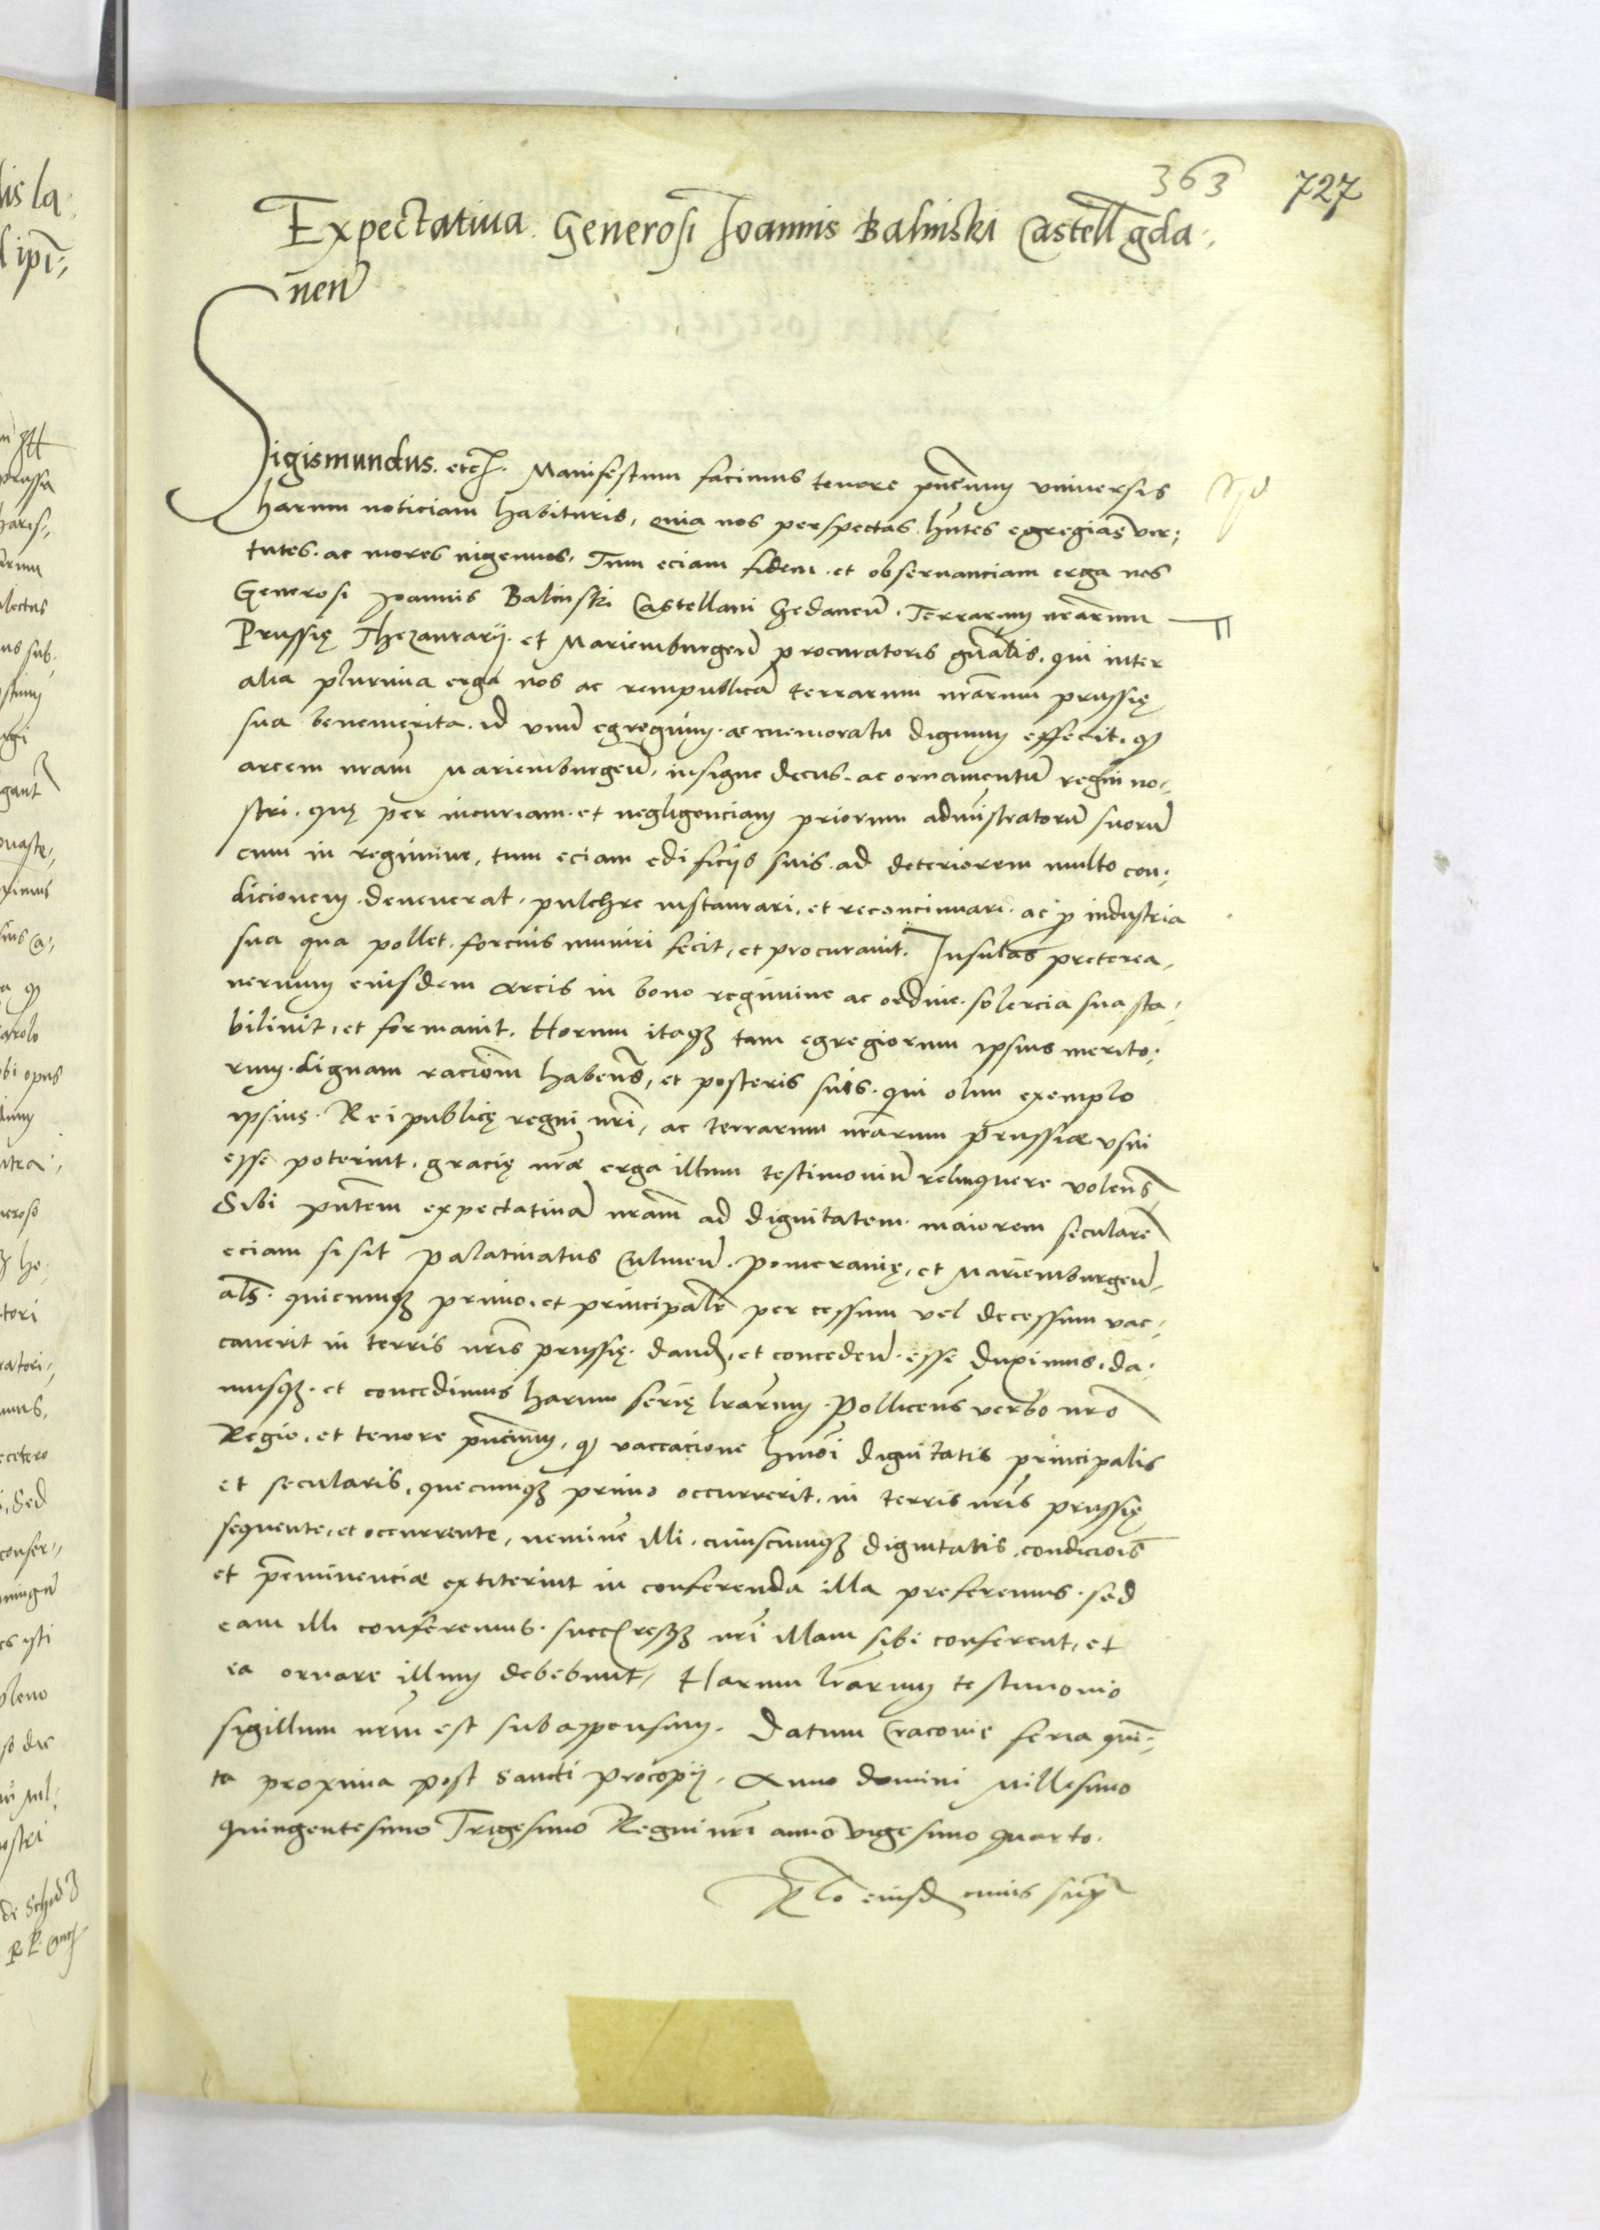 363 727
Expectatiua Generosi Joannis Balinski Castell gda-
nen
Sigismundus. etc. Manifestum facimus tenore pñcium vniuersis
harum noticiam habituris, quia nos perspectas hñtes egregias vir-
tutes. ac mores ingenuos. Tum eciam fidem. et obseruanciam erga nos
Generosi Joannis Balinski Castellani Gedanen. Terrarum nrarum
Prussię Thezaurarij. et Mariemburgen procuratoris gnalis. qui inter
alia plurima erga nos ac rempublica terrarum nrarum prussię
sua benemerita. id vnu egregium. ac memoratu dignum effecit. q
arcem nram Mariemburgen. insigne decus. ac ornamentu regni no-
stri. quę per incuriam. et negligenciam priorum administratoru suoru
cum in regimine, tum eciam edificijs suis. ad deteriorem multo con-
dicionem deuenerat. pulchre instaurari, et reconcinnari. ac p industria
sua qua pollet. forcius muniri fecit, et procurauit. Insulas preterea
nernum eiusdem arcis in bono regimine ac ordine. solercia sua sta-
biliuit, et formauit. Horum itaq3 tam egregiorum ipsius merito-
rum. dignam racionm habens, et posteris suis. qui olim exemplo
ipsius. Reipublicę regni nri, ac terrarum nrarum prussiæ vsui
esse poterint. gracię nræ erga illum testimoniu relinquere volens
Sibi pntem expectatiua nram ad dignitatem. maiorem seculare
eciam si sit palatinatus Culmen. pomeranię, et Mariemburgen
als. quicumq3 primo. et principalr per cessum vel decessum vac-
cauerit in terris nris prussię. dand, et conceden. esse duximus. da-
musq3. et concedimus harum serię lrarum. Pollicens verbo nro
Regio. et tenore pncium, q vaccacione hmoi dignitatis principalis
et secularis. quecumq3 primo occurrerit. in terris nris prussię
sequente, et occurrente, nemine illi. cuiuscumq3 dignitatis. condicionis
et preminenciæ extiterint in conferenda illa preferemus. sed
eam illi conferemus. succresq3 nri illam sibi conferent, et
ea ornare illum debebunt, Harum lrarum testimonio
sigillum nrm est subappensum. Datum Cracouie feria quin-
ta proxima post sancti procopij. Anno domini Millesimo
quingentesimo Trigesimo Regni nri anno vigesimo quarto.
Rlo eiusd cuius supra